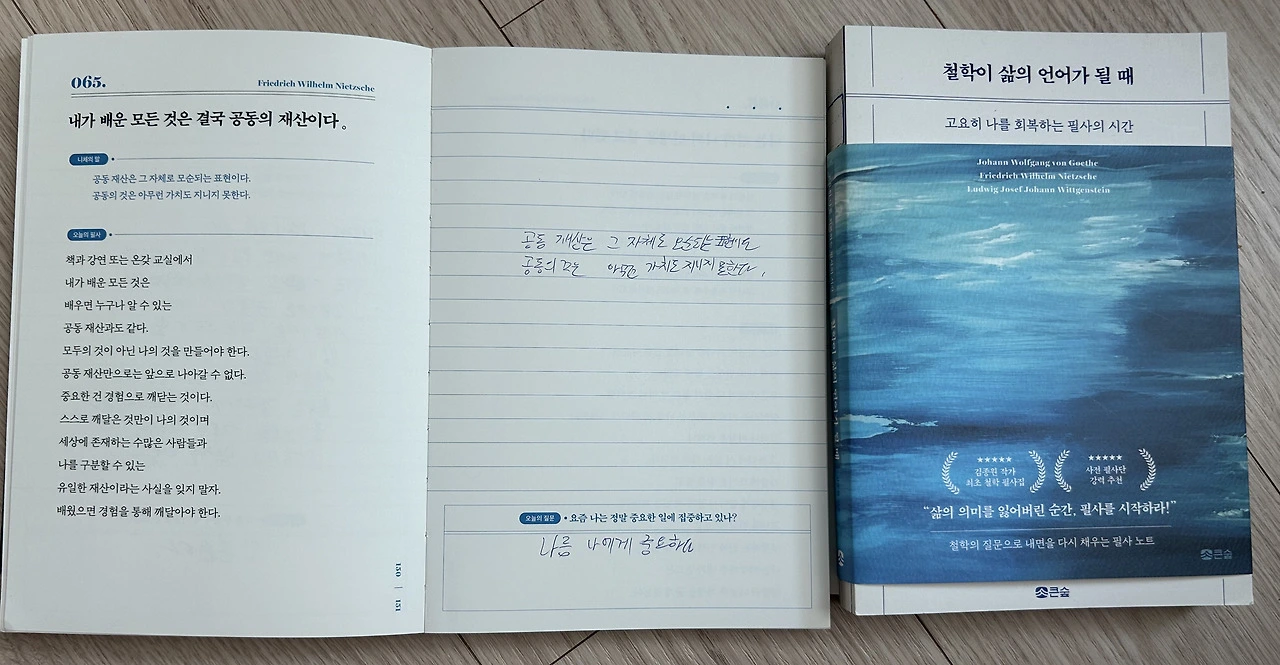 065.
Friedrich Wilhelm Nietzsche
내가 배운 모든 것은 결국 공동의 재산이다.
니체의 말
공동 재산은 그 자체로 모순되는 표현이다.
공동의 것은 아무런 가치도 지니지 못한다.
오늘의 필사
책과 강연 또는 온갖 교실에서
내가 배운 모든 것은
배우면 누구나 알 수 있는
공동 재산과도 같다.
모두의 것이 아닌 나의 것을 만들어야 한다.
공동 재산만으로는 앞으로 나아갈 수 없다.
중요한 건 경험으로 깨닫는 것이다.
스스로 깨달은 것만이 나의 것이며
세상에 존재하는 수많은 사람들과
나를 구분할 수 있는
유일한 재산이라는 사실을 잊지 말자.
배웠으면 경험을 통해 깨달아야 한다.
130 | 131
공동 재산은 그 자체로
공동의 것은 아무런 가치도 지니지 못한다.
오늘의 질문 • 요즘 나는 정말 중요한 일에 집중하고 있나?
나름 나에게 중요하다
철학이 삶의 언어가 될 때
고요히 나를 회복하는 필사의 시간
Johann Wolfgang von Goethe
Friedrich Wilhelm Nietzsche
Ludwig Josef Johann Wittgenstein
철학이 삶의 언어가 될 때
김종원 작가
최초 철학 필사집
사전 필사단
강력 추천
“삶의 의미를 잃어버린 순간, 필사를 시작하라!”
철학의 질문으로 내면을 다시 채우는 필사 노트
큰숲
큰숲